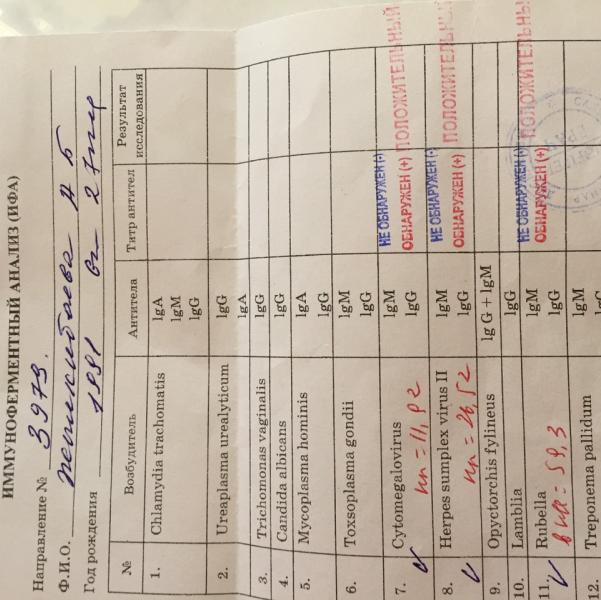 ИММУНОФЕРМЕНТНЫЙ АНАЛИЗ (ИФА)
Направление № 3979.
Ф.И.О. А Б
Год рождения 1991
№ Возбудитель Антитела Титр антител Результат исследования
1. Chlamydia trachomatis IgA
IgM
IgG
2. Ureaplasma urealyticum IgG
IgA
3. Trichomonas vaginalis IgG
4. Candida albicans IgG
5. Mycoplasma hominis IgA
IgG
6. Toxsoplasma gondii IgM
IgG
7. Cytomegalovirus IgM НЕ ОБНАРУЖЕН (-)
IgG ОБНАРУЖЕН (+) ПОЛОЖИТЕЛЬНЫЙ
8. Herpes sumplex virus II IgM НЕ ОБНАРУЖЕН (-)
IgG ОБНАРУЖЕН (+) ПОЛОЖИТЕЛЬНЫЙ
9. Opyctorchis fylineus Ig G + IgM
10. Lamblia IgG
11. Rubella IgM НЕ ОБНАРУЖЕН (-)
= 59,3 IgG ОБНАРУЖЕН (+) ПОЛОЖИТЕЛЬНЫ
12. Treponema pallidum IgM